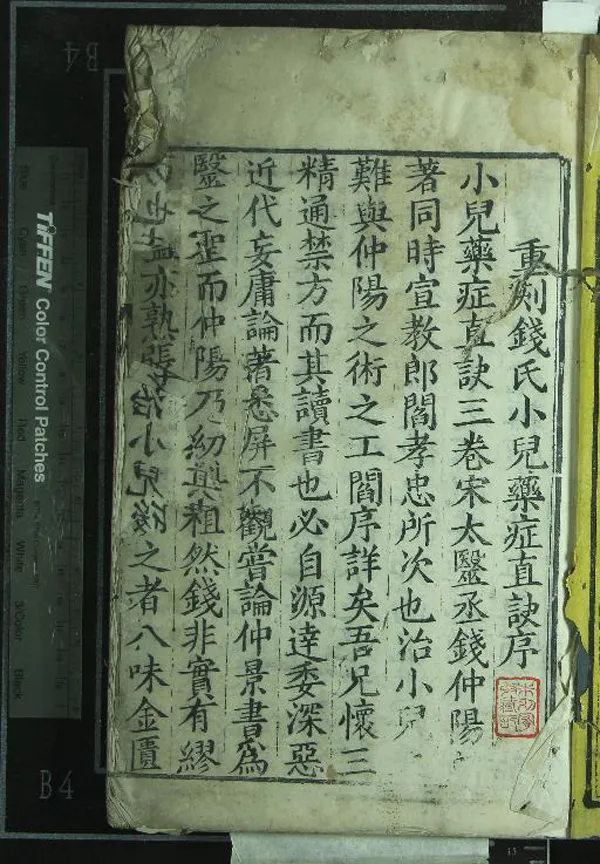 重刻錢氏小兒藥症直訣序
小兒藥症直訣三卷宋太醫丞錢仲陽
著同時宣教郎閻孝忠所次也治小兒
難與仲陽之術之工閻序詳矣吾兄懷三
精通禁方而其讀書也必自源達委深惡
近代妄庸論著悉屏不觀嘗論仲景書為
醫之聖而仲陽乃幼與粗然錢非實有繆
也亦熟治小兒之者八味金匱
TIFFEN Color Control Patches
Blue
Cyan
Green
Yellow
Red
Magenta
White
3/Color
Black
B4
B4